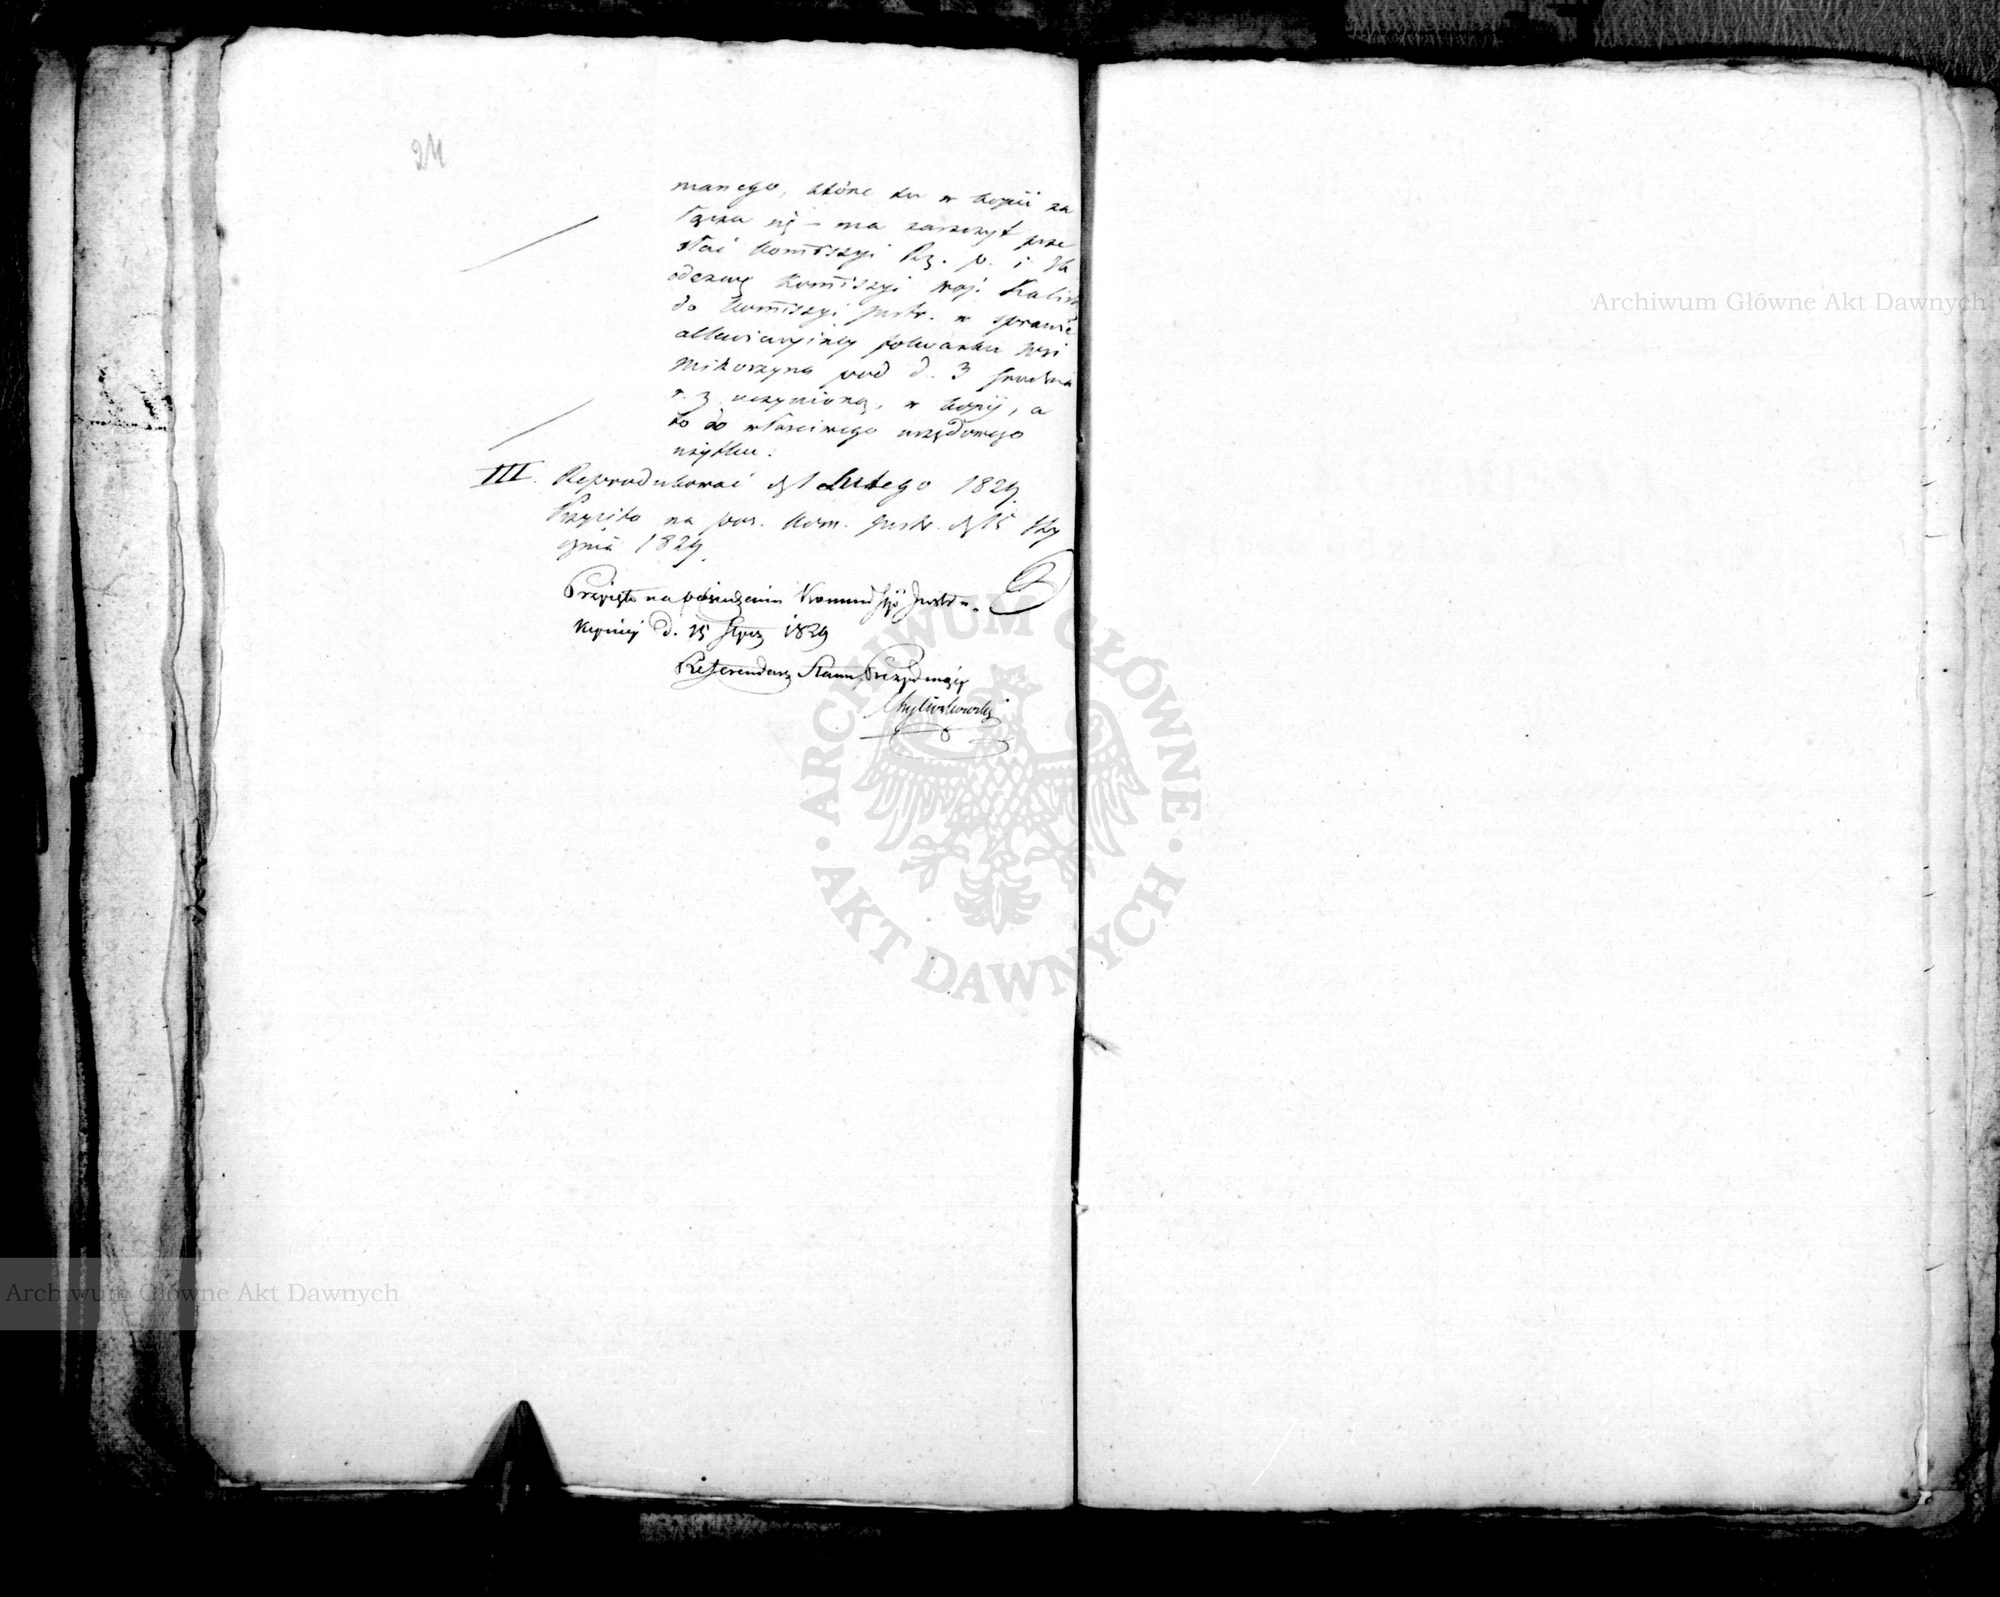 24
manego, które tu w kopii za
łącza się – ma zaszczyt prze
słać Kommissyi Rz. p. i
odezwę Kommissyi Woj: Kalisk
do Kommissyi Instr. w sprawie
alluwicyiney folwarku wsi
Mikorzyna pod d. 3 Grudnia
r. z. uczynioną, w kopij, a
to do właściwego urzędowego
użytku.
III. Reprodukować d. 1 Lutego 1829.
Przyięto na pos. Kom. Instr. d. 15 Sty
cznia 1829.
Przyięto na posiedzeniu Kommissyi Instru-
kcyiney d. 15 Stycz 1829
Referendarz Stanu Prezyduiący
Chyliczkowski
Archiwum Główne Akt Dawnych
Archiwum Główne Akt Dawnych
ARCHIWUM GŁÓWNE · AKT DAWNYCH ·